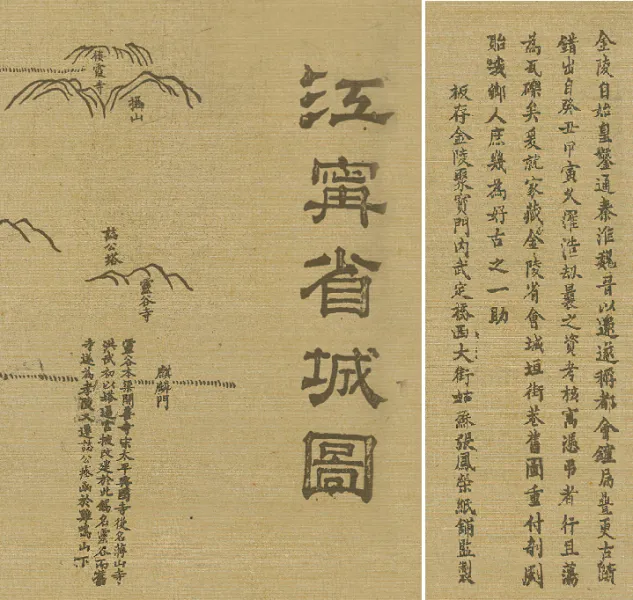 江甯省城圖
棲霞寺
攝山
誌公塔
靈谷寺
麒麟門
靈谷本梁開善寺宋太平興國寺後名蔣山寺
洪武初以塔逼宮掖改建於此錫名靈谷而舊
寺遂為孝陵又遷誌公塔函於雞鳴山下
金陵自始皇鑿通秦淮魏晉以還遂稱都會局疊更古蹟
錯出自癸丑甲寅久罹浩劫曩之資考核寓憑弔者行且蕩
為瓦礫矣爰就家藏金陵省會城垣街巷舊圖重付剞劂
貽鄉人庶幾為好古之一助
板存金陵聚寶門內武定橋西大街姑蘇張鳳榮紙鋪監製